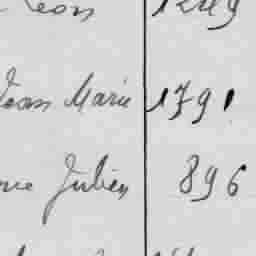 Léon 1249
Jean Marie 1791
Julien 896